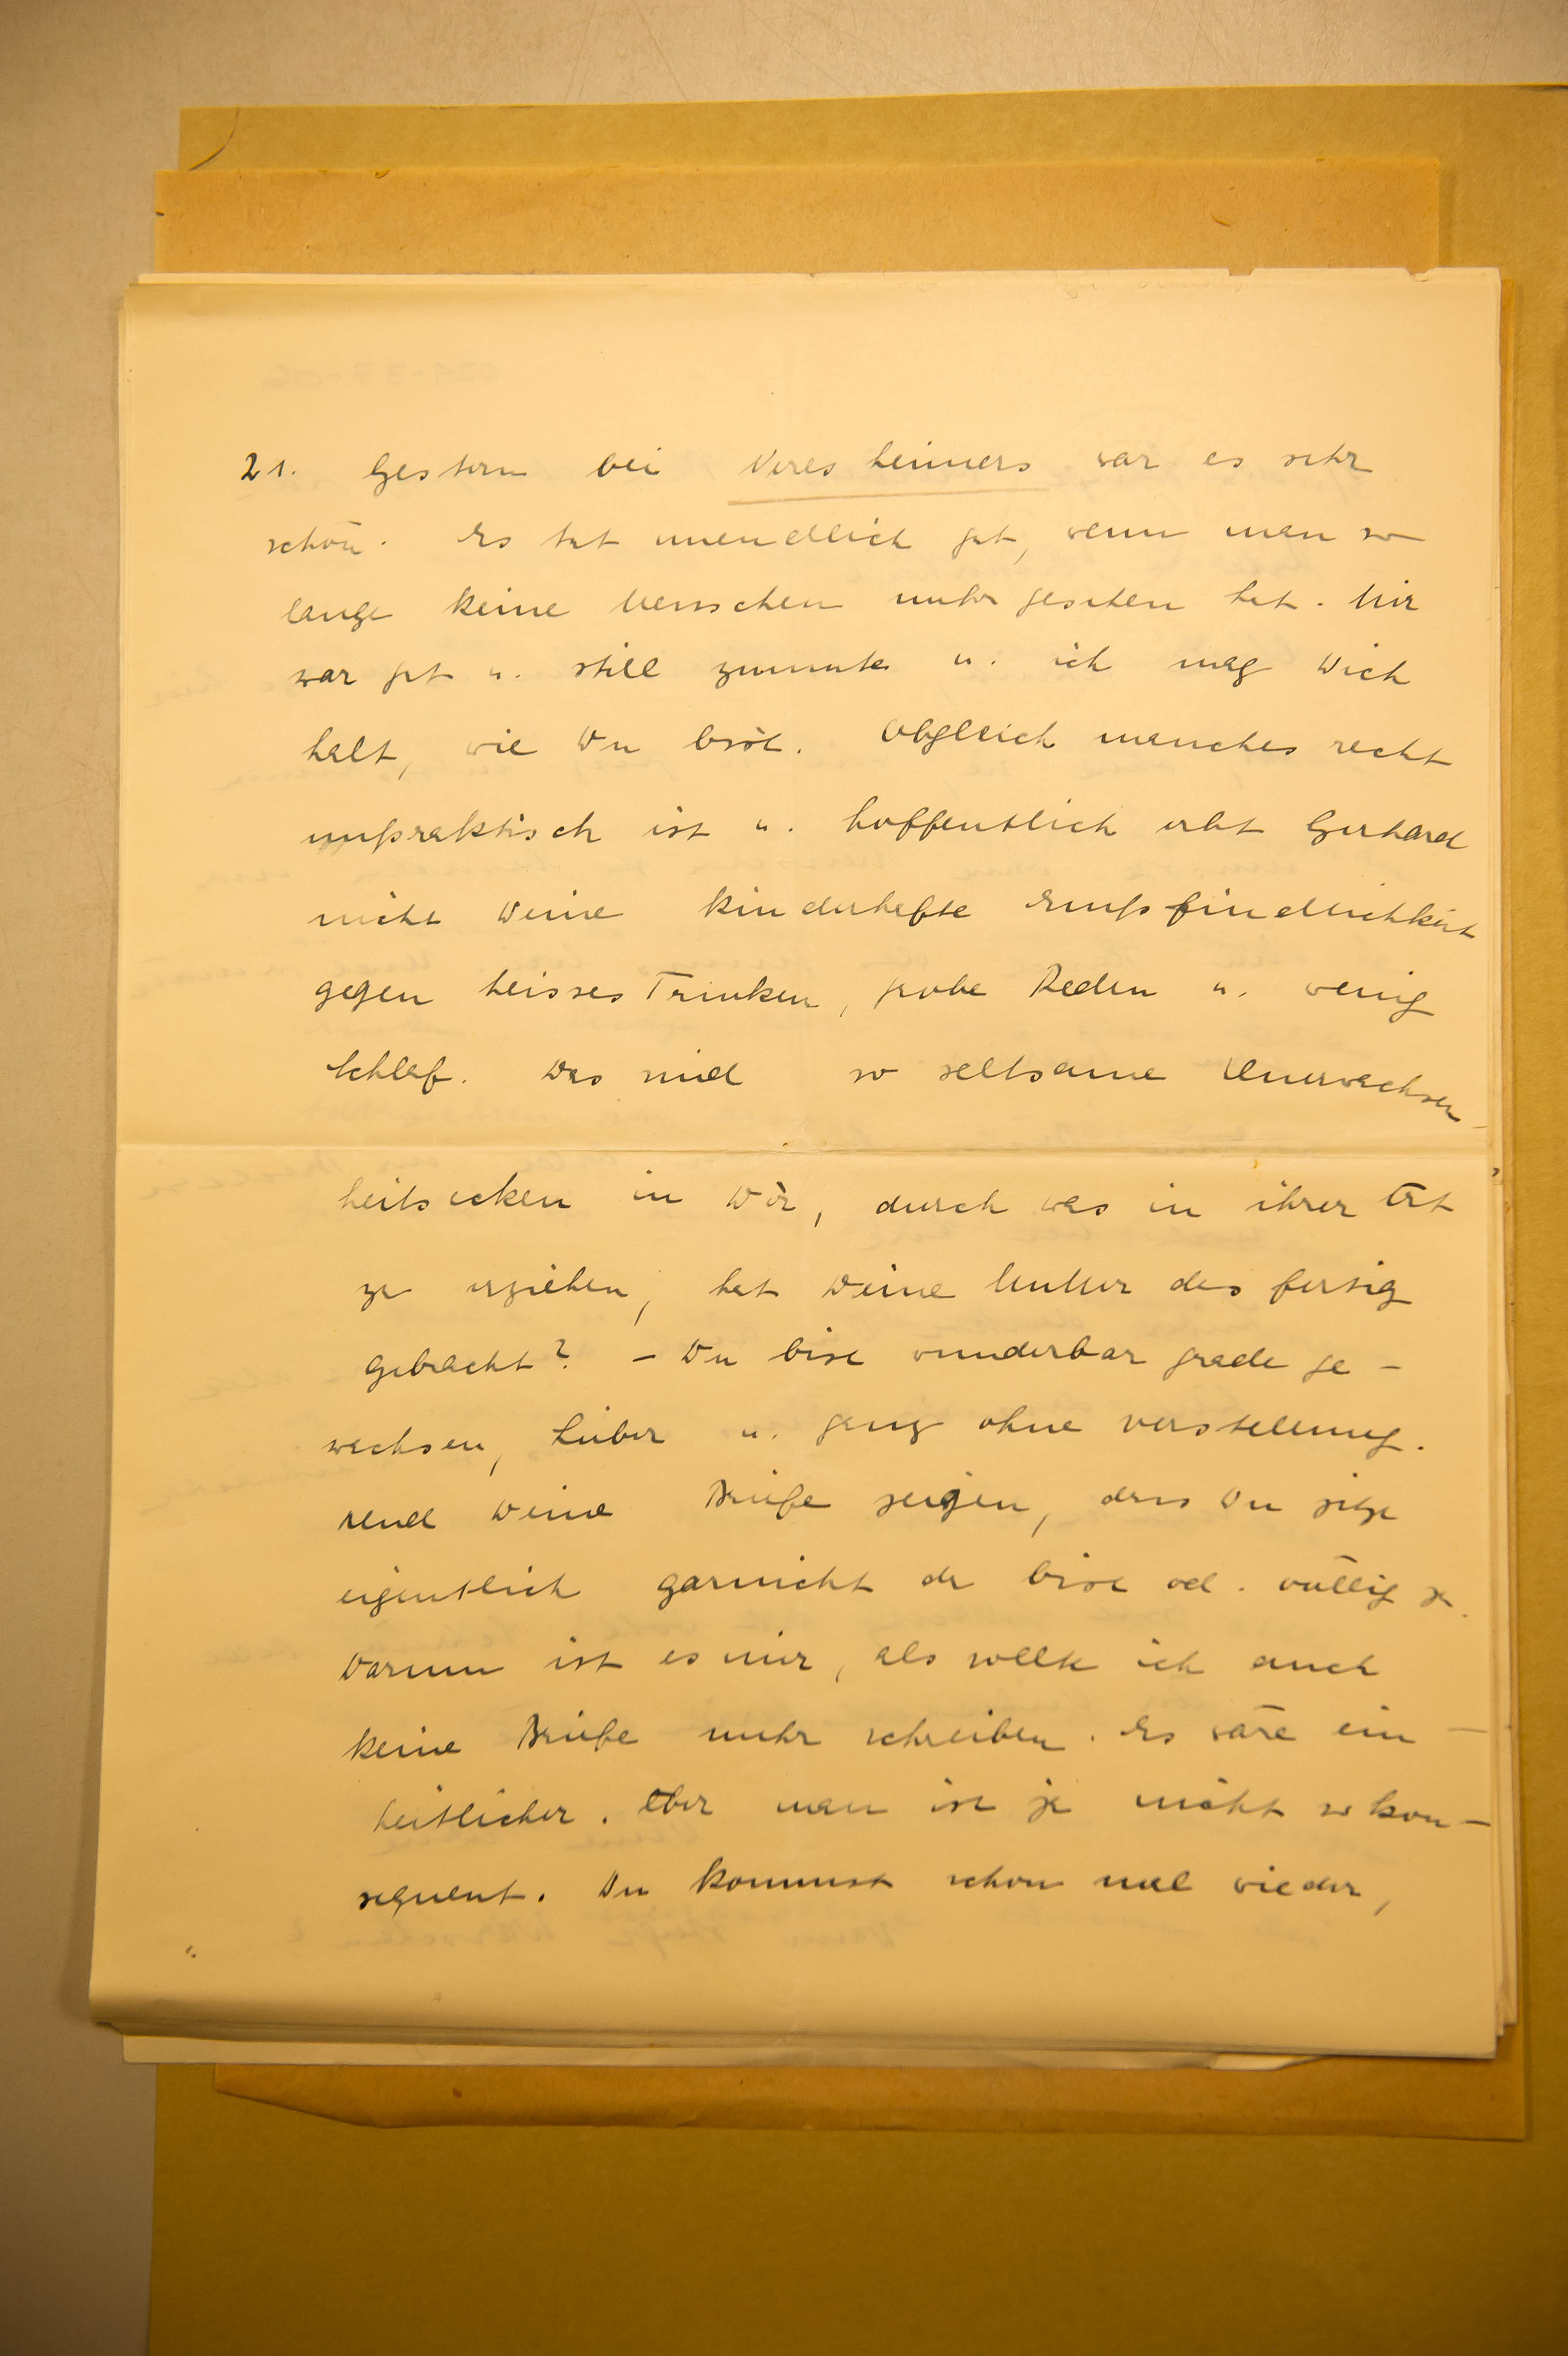 21. Gestern bei war es sehr
schön. Es tut unendlich gut, wenn man so
lange keine Menschen mehr gesehen hat. Mir
war gut u. still zumute u. ich mag Dich
halt, wie Du bist. Obgleich manches recht
unpraktisch ist u. hoffentlich erbt Gerhard
nicht Deine kinderhafte Empfindlichkeit
gegen heisses Trinken, grobe Reden u. wenig
Schlaf. Das sind so seltsame Unerwachsen-
heitsecken in Dir, durch was in ihrer Art
zu erziehen, hat Deine Mutter das fertig
gebracht? – Du bist wunderbar grade ge-
wachsen, Lieber u. ganz ohne Verstellung.
Und Deine Briefe zeigen, dass Du jetzt
eigentlich garnicht da bist od. völlig ja.
Darum ist es mir, als sollte ich auch
keine Briefe mehr schreiben. Es wäre ein-
heitlicher. Aber man ist ja nicht so kon-
sequent. Du kommst schon mal wieder,